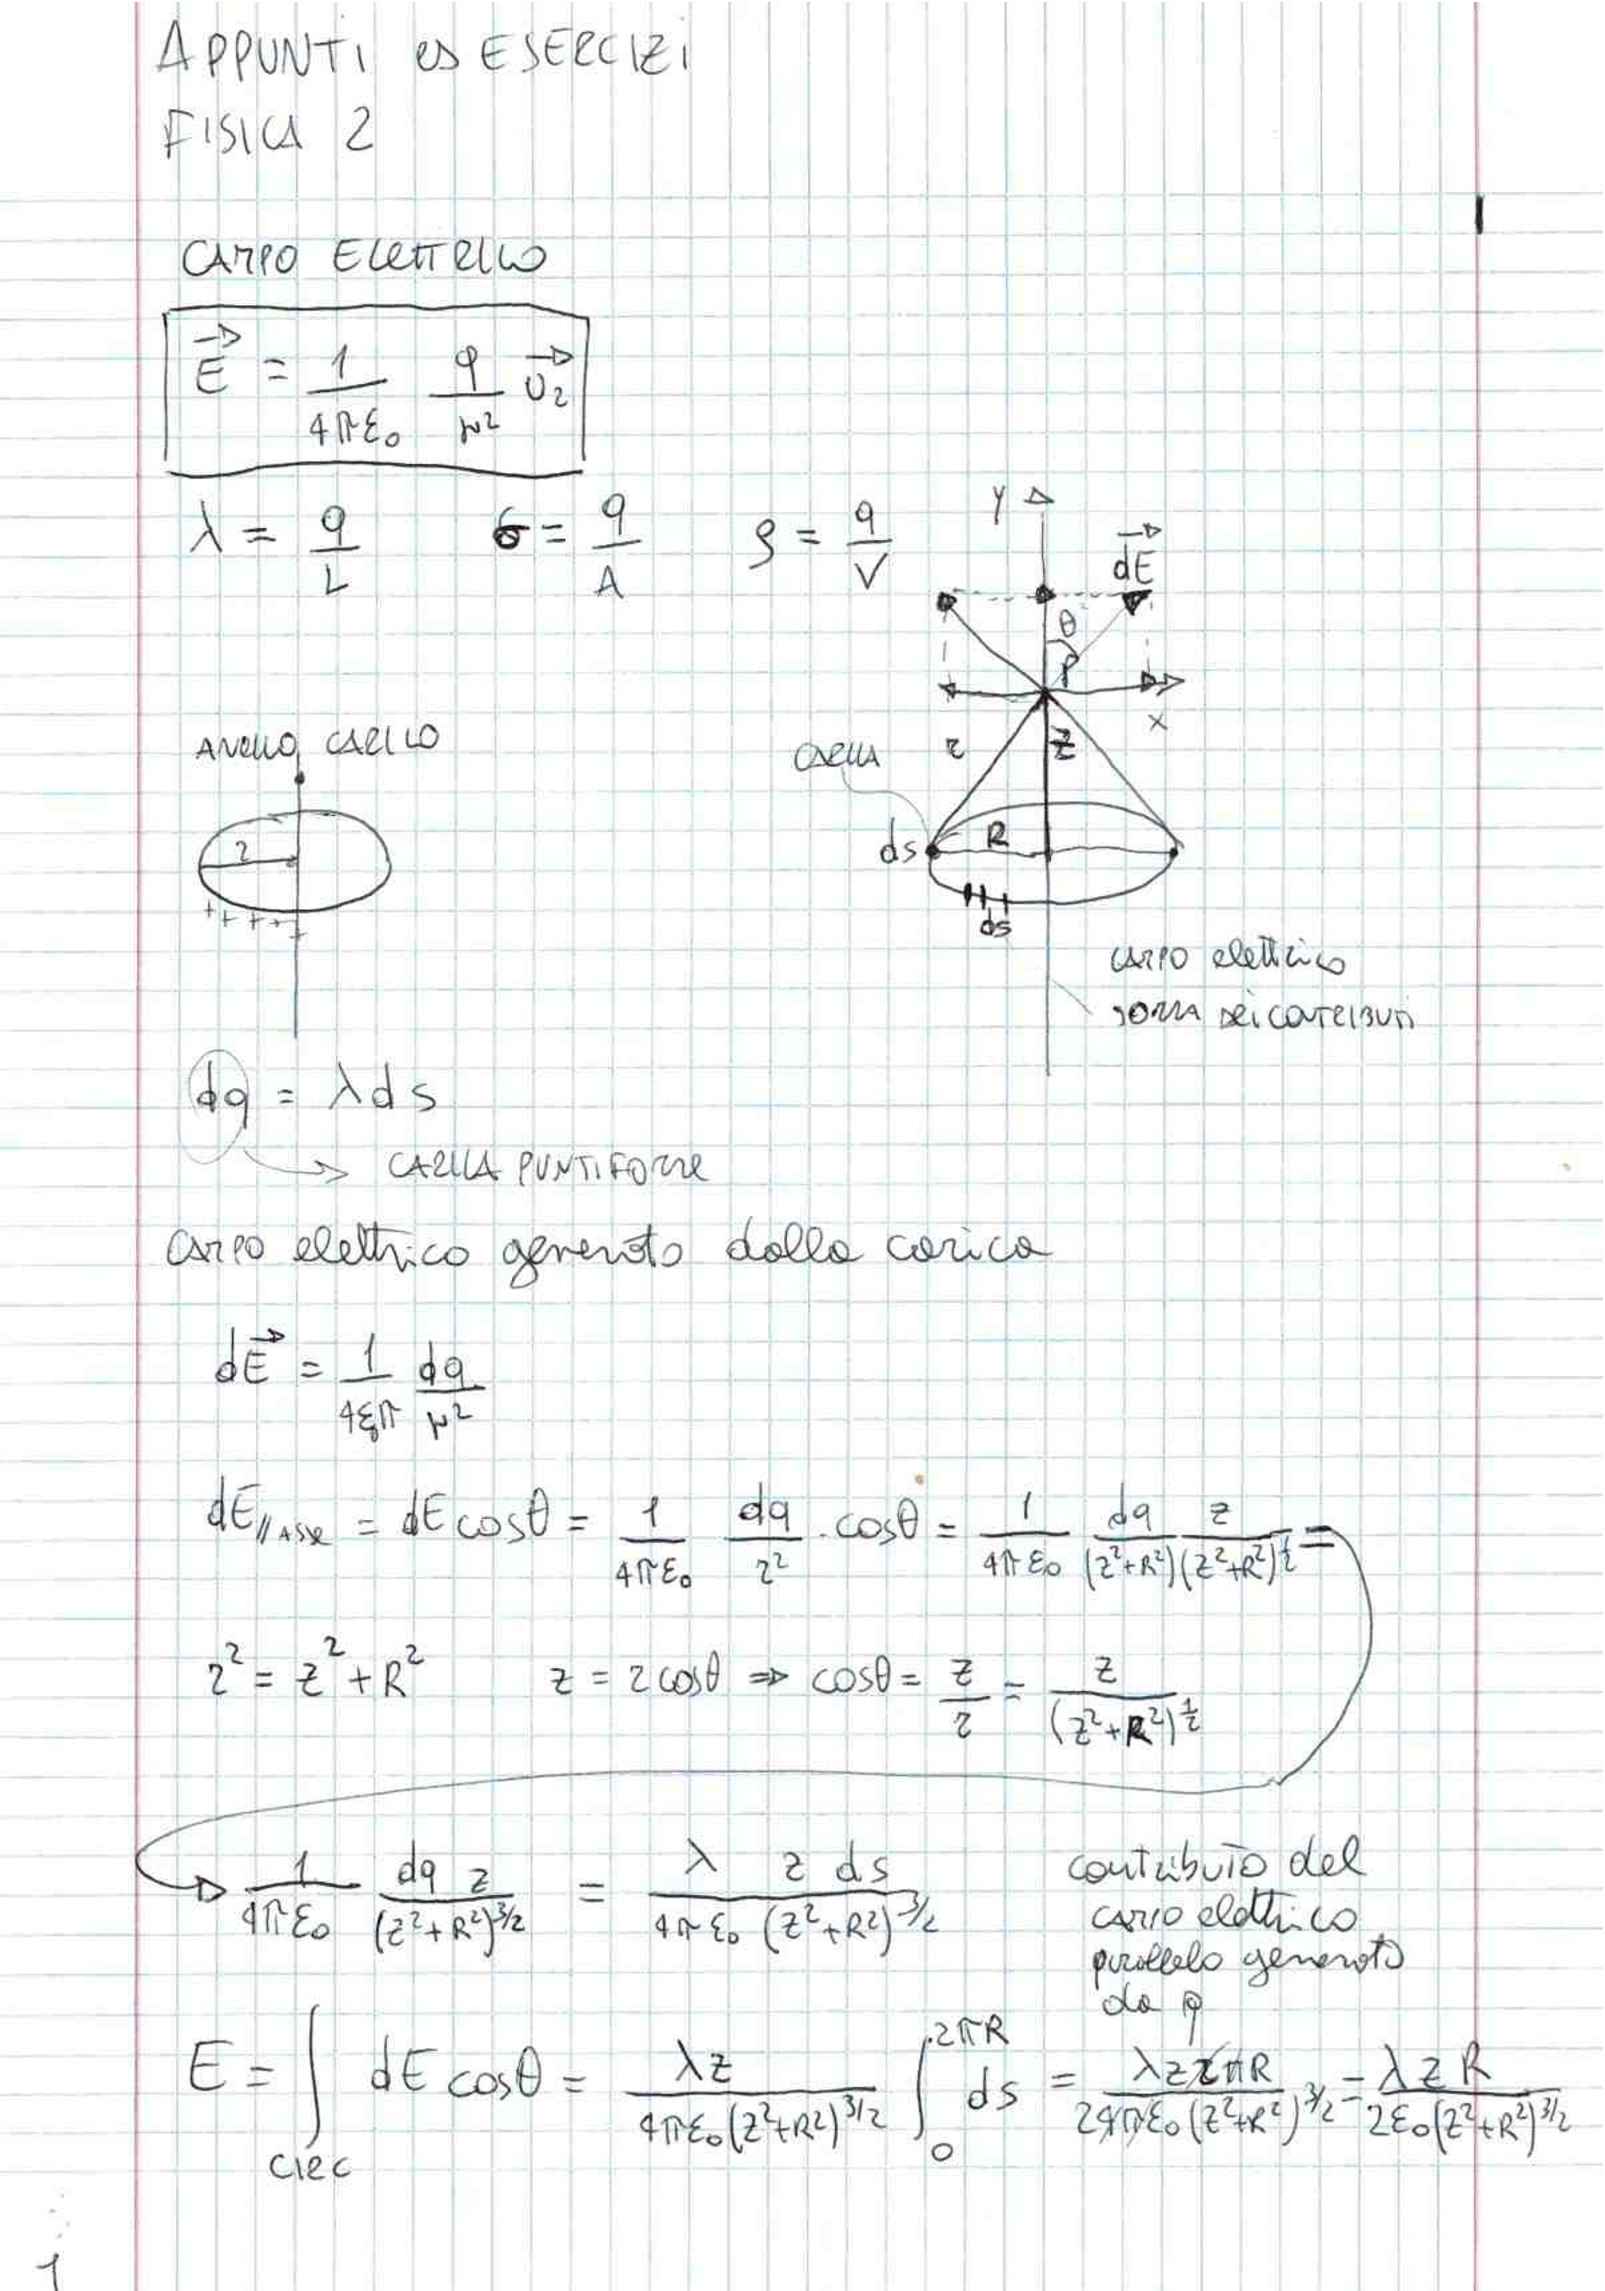 APPUNTI ed ESERCIZI
FISICA 2
1
CAMPO ELETTRICO
E⃗ = 1/(4πε₀) q/r² u⃗r
λ = q/L σ = q/A ρ = q/V
y
dE⃗
θ
P
x
ANELLO CARICO
CARICA r z
r
ds R
ds
+ + + + +
CAMPO elettrico
SOMMA DEI CONTRIBUTI
dq = λ ds
→ CARICA PUNTIFORME
CAMPO elettrico generato dalla carica
dE⃗ = 1/(4ε₀π) dq/r²
dE//ASSE = dE cosθ = 1/(4πε₀) dq/r² · cosθ = 1/(4πε₀) dq/(z²+R²) z/(z²+R²)^½ =
r² = z² + R² z = r cosθ ⇒ cosθ = z/r = z/(z²+R²)^½
1/(4πε₀) dq z/(z²+R²)^3/2 = λ/(4πε₀) z ds/(z²+R²)^3/2
contributo del
CAMPO elettrico
parallelo generato
da q
E = ∫CIRC dE cosθ = λz/(4πε₀(z²+R²)^3/2) ∫₀^2πR ds = λz2πR/(4πε₀(z²+R²)^3/2) = λzR/(2ε₀(z²+R²)^3/2)
1